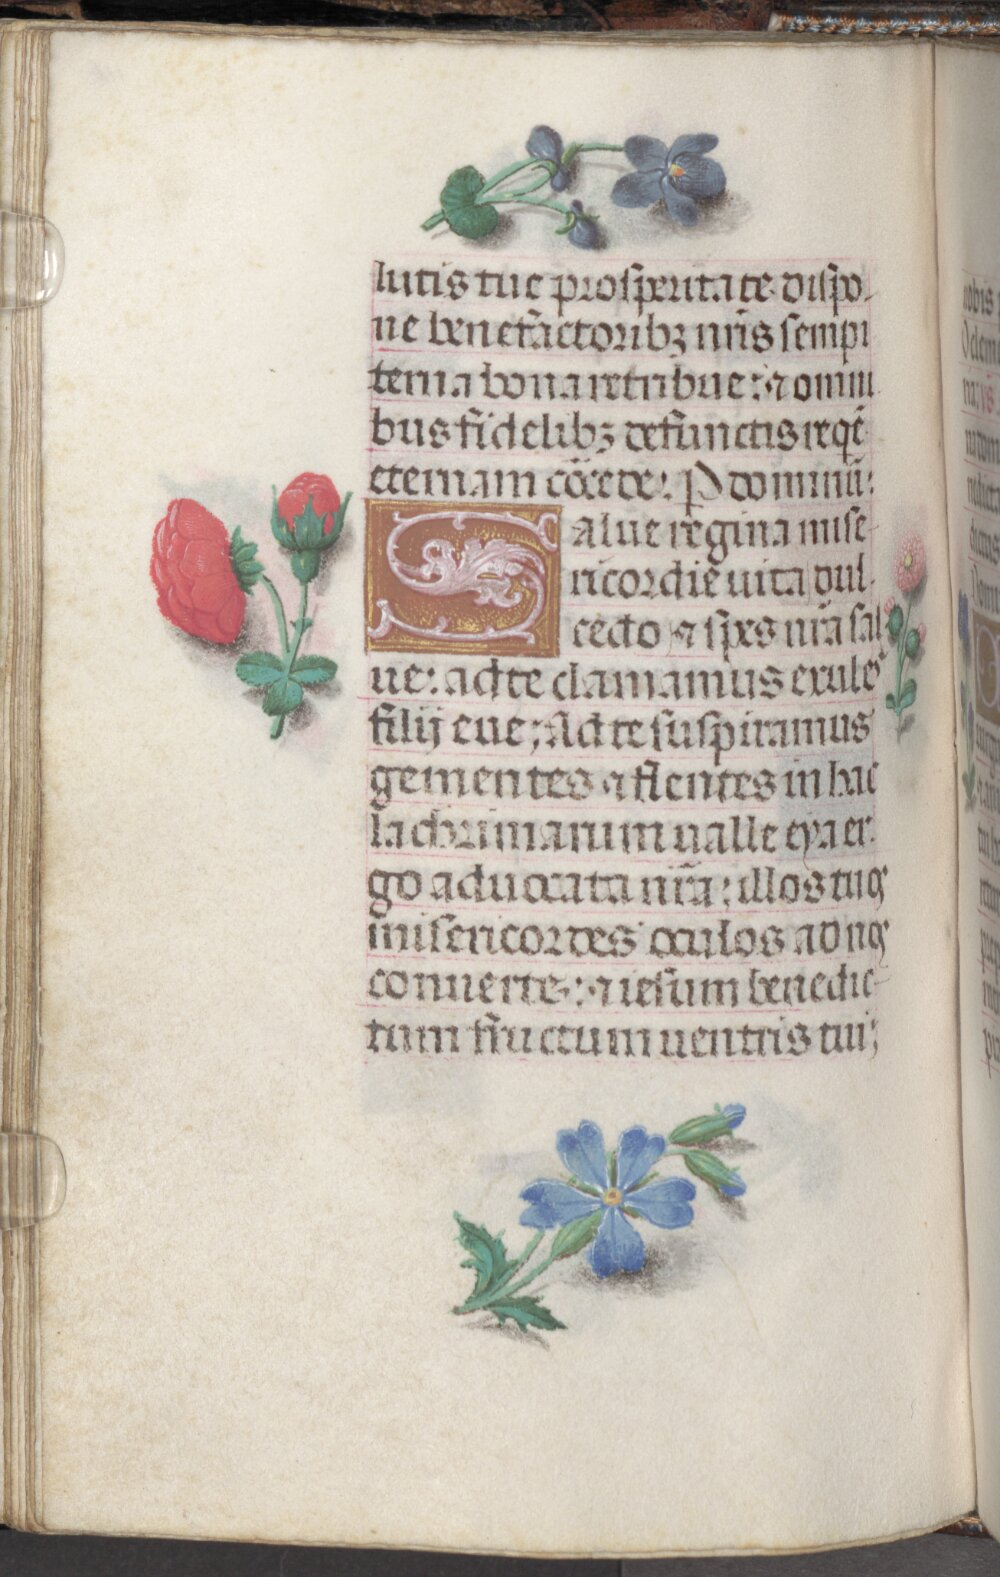 lutis tue prosperitate dispo-
ne benefactoribꝫ nr̄is sempi
terna bona retribue: ⁊ omni
bus fidelibꝫ defunctis reqē
eternam cōcede: P dominū:
Salue regina mise-
ricordie uita dul-
cedo ⁊ spes nr̄a sal
ue: ad te clamamus exules
filij eue; Ad te suspiramus
gementes ⁊ flentes in hac
lachrimarum ualle eya er-
go aduocata nr̄a: illos tuos
misericordes oculos ad nos
conuerte: ⁊ iesum benedic-
tum fructum uentris tui;